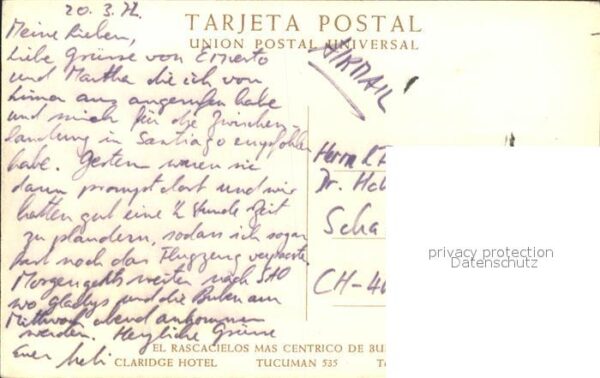 20.3.72.
TARJETA POSTAL
UNION POSTAL UNIVERSAL
AIRMAIL
Meine Lieben,
liebe Grüsse von Ernesto
und Martha die ich von
Lima aus angerufen habe
und mich für die Zwischen-
landung in Santiago empfohlen
habe. Gestern waren sie
dann prompt dort und wir
hatten gut eine ½ Stunde Zeit
zu plaudern, sodass ich sogar
fast noch das Flugzeug verpasste.
Morgen geht's weiter nach SAO
wo Gladys und die Buben am
Mittwoch abend ankommen
werden. Herzliche Grüsse
Euer
Herrn
Dr.
CH-
privacy protection
Datenschutz
EL RASCACIELOS MAS CENTRICO DE
CLARIDGE HOTEL TUCUMAN 535